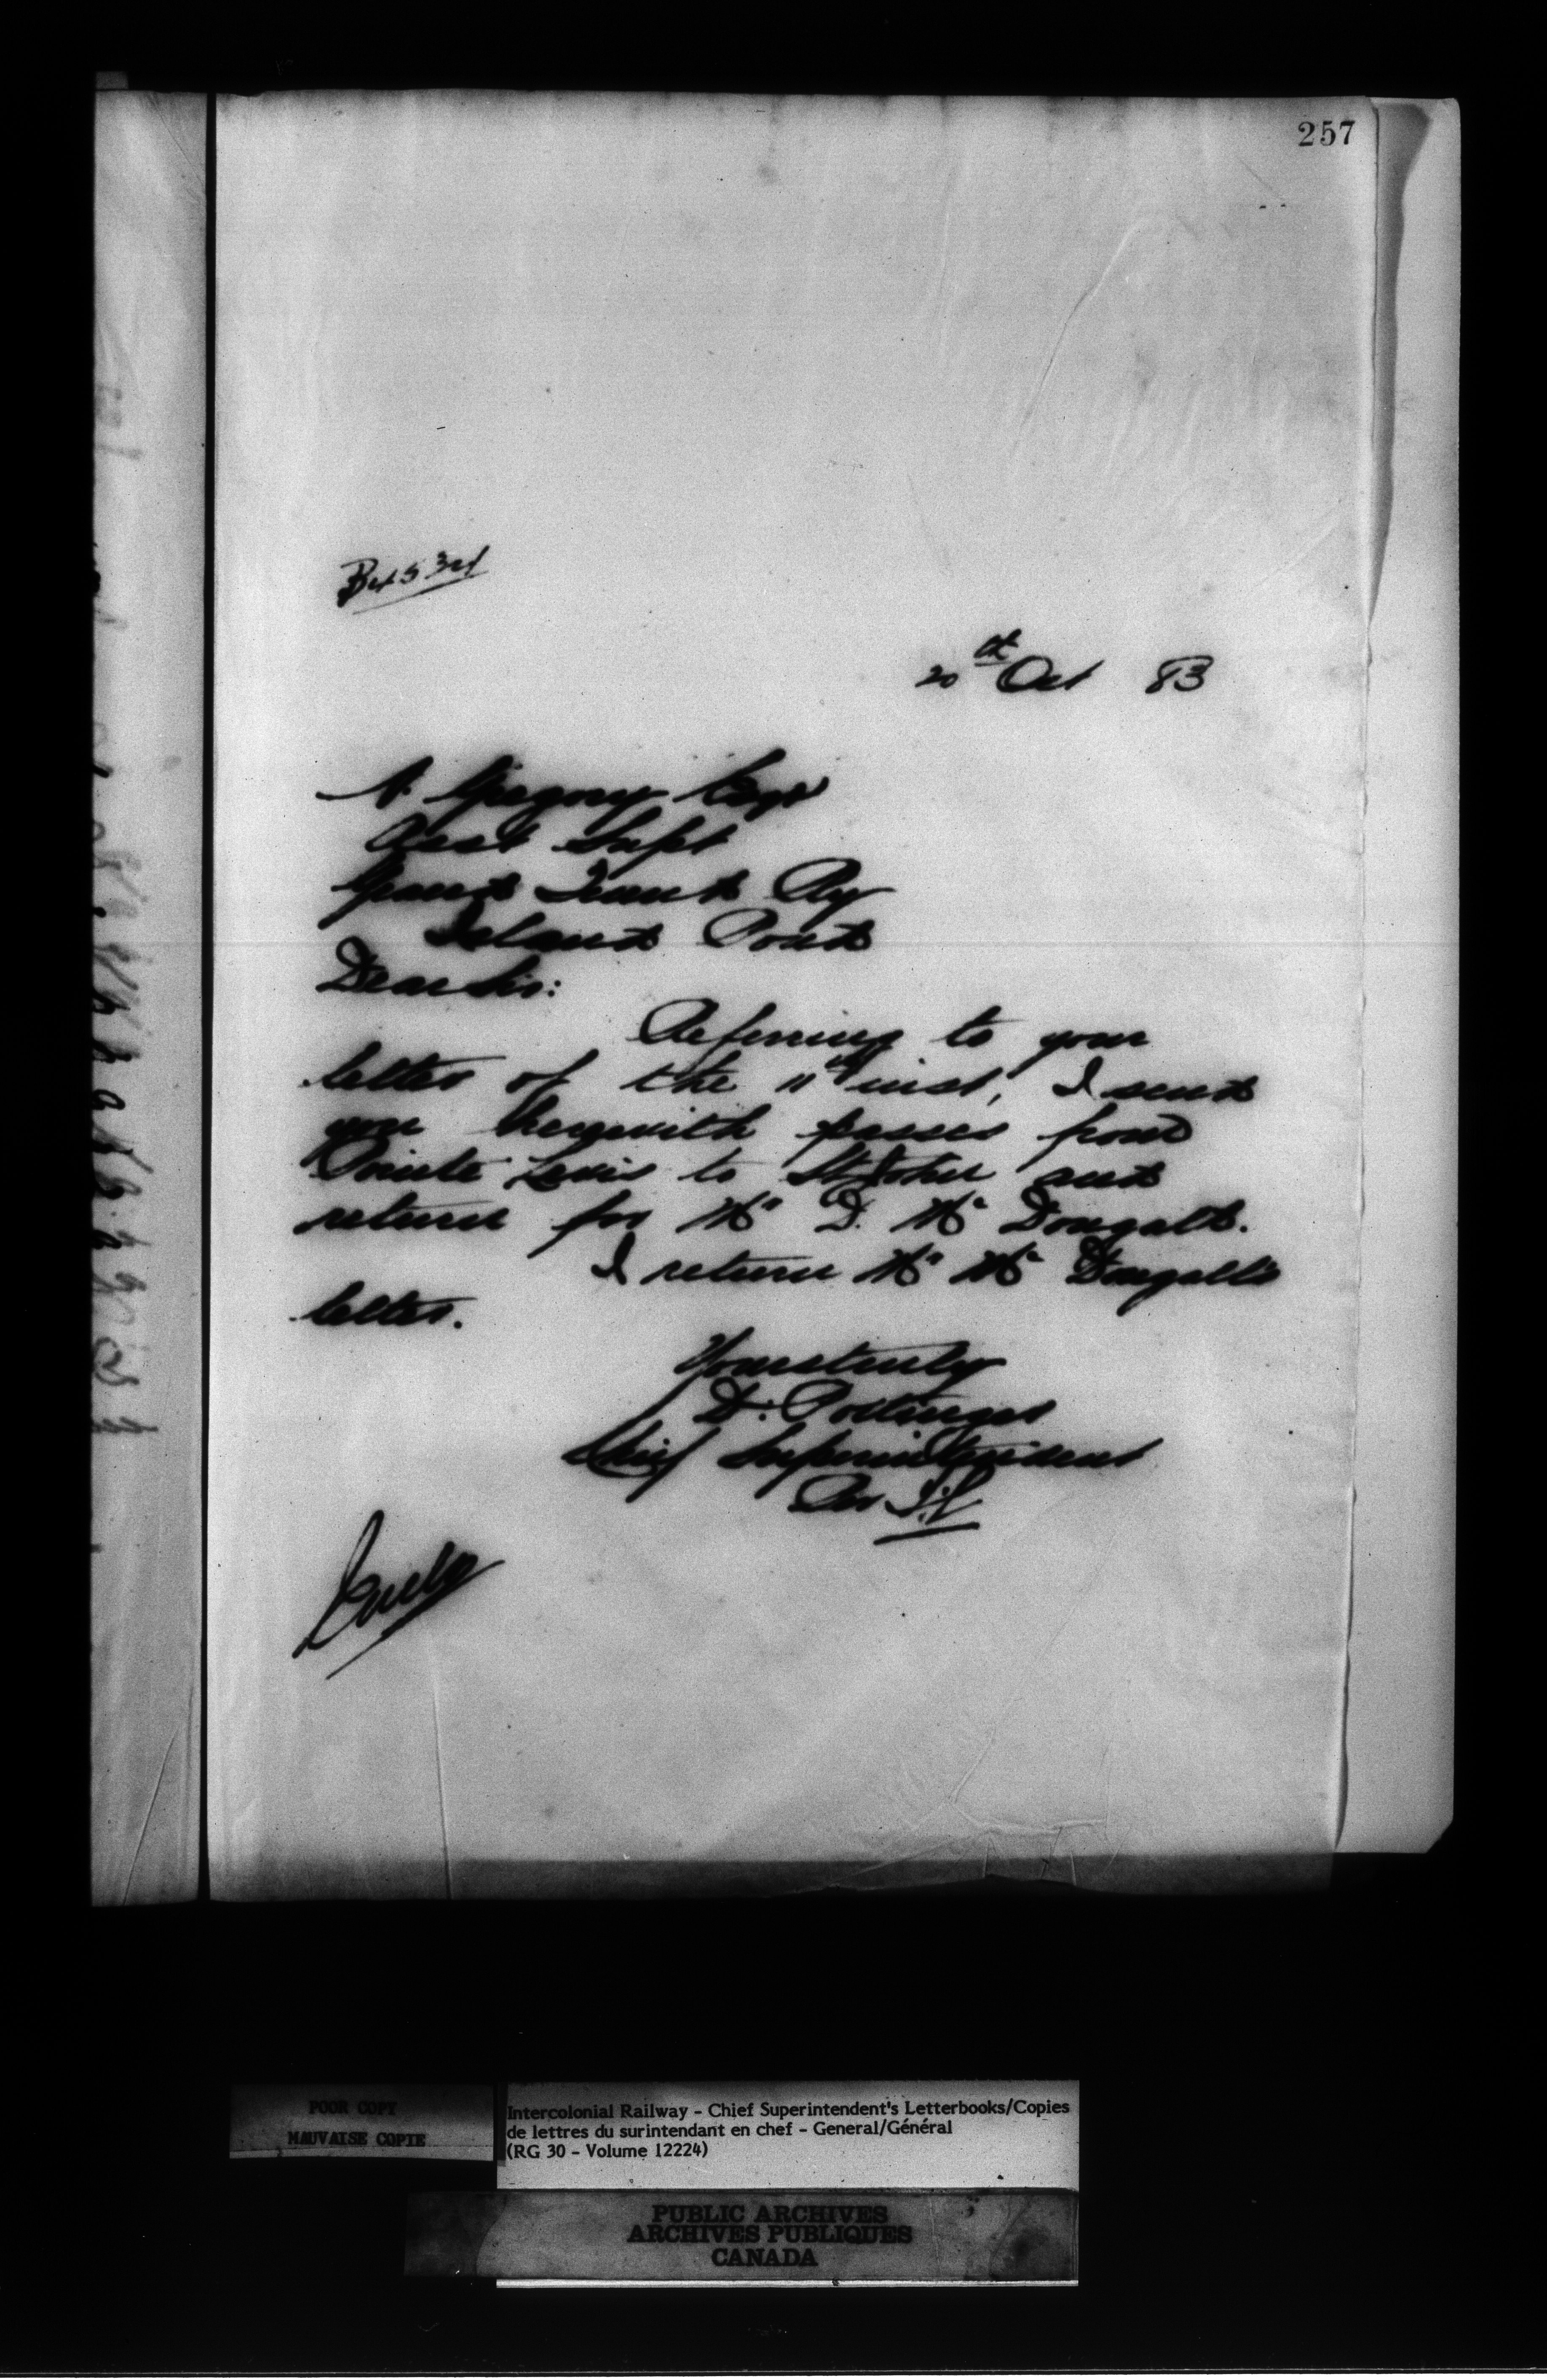 257
20th Oct 83
A. Gregory Esqr
Asst Supt
Grand Trunk Ry
Island Pond
Dear Sir:
Referring to your
letter of the 11th inst, I send
you herewith passes from
Pointe Levis to St John and
return for Mr D. Mc Dougall.
I return Mr Mc Dougall's
letter.
Yours truly
D. Pottinger
Chief Superintendent
Per
POOR COPY
MAUVAISE COPIE
Intercolonial Railway - Chief Superintendent's Letterbooks/Copies
de lettres du surintendant en chef - General/Général
(RG 30 - Volume 12224)
PUBLIC ARCHIVES
ARCHIVES PUBLIQUES
CANADA